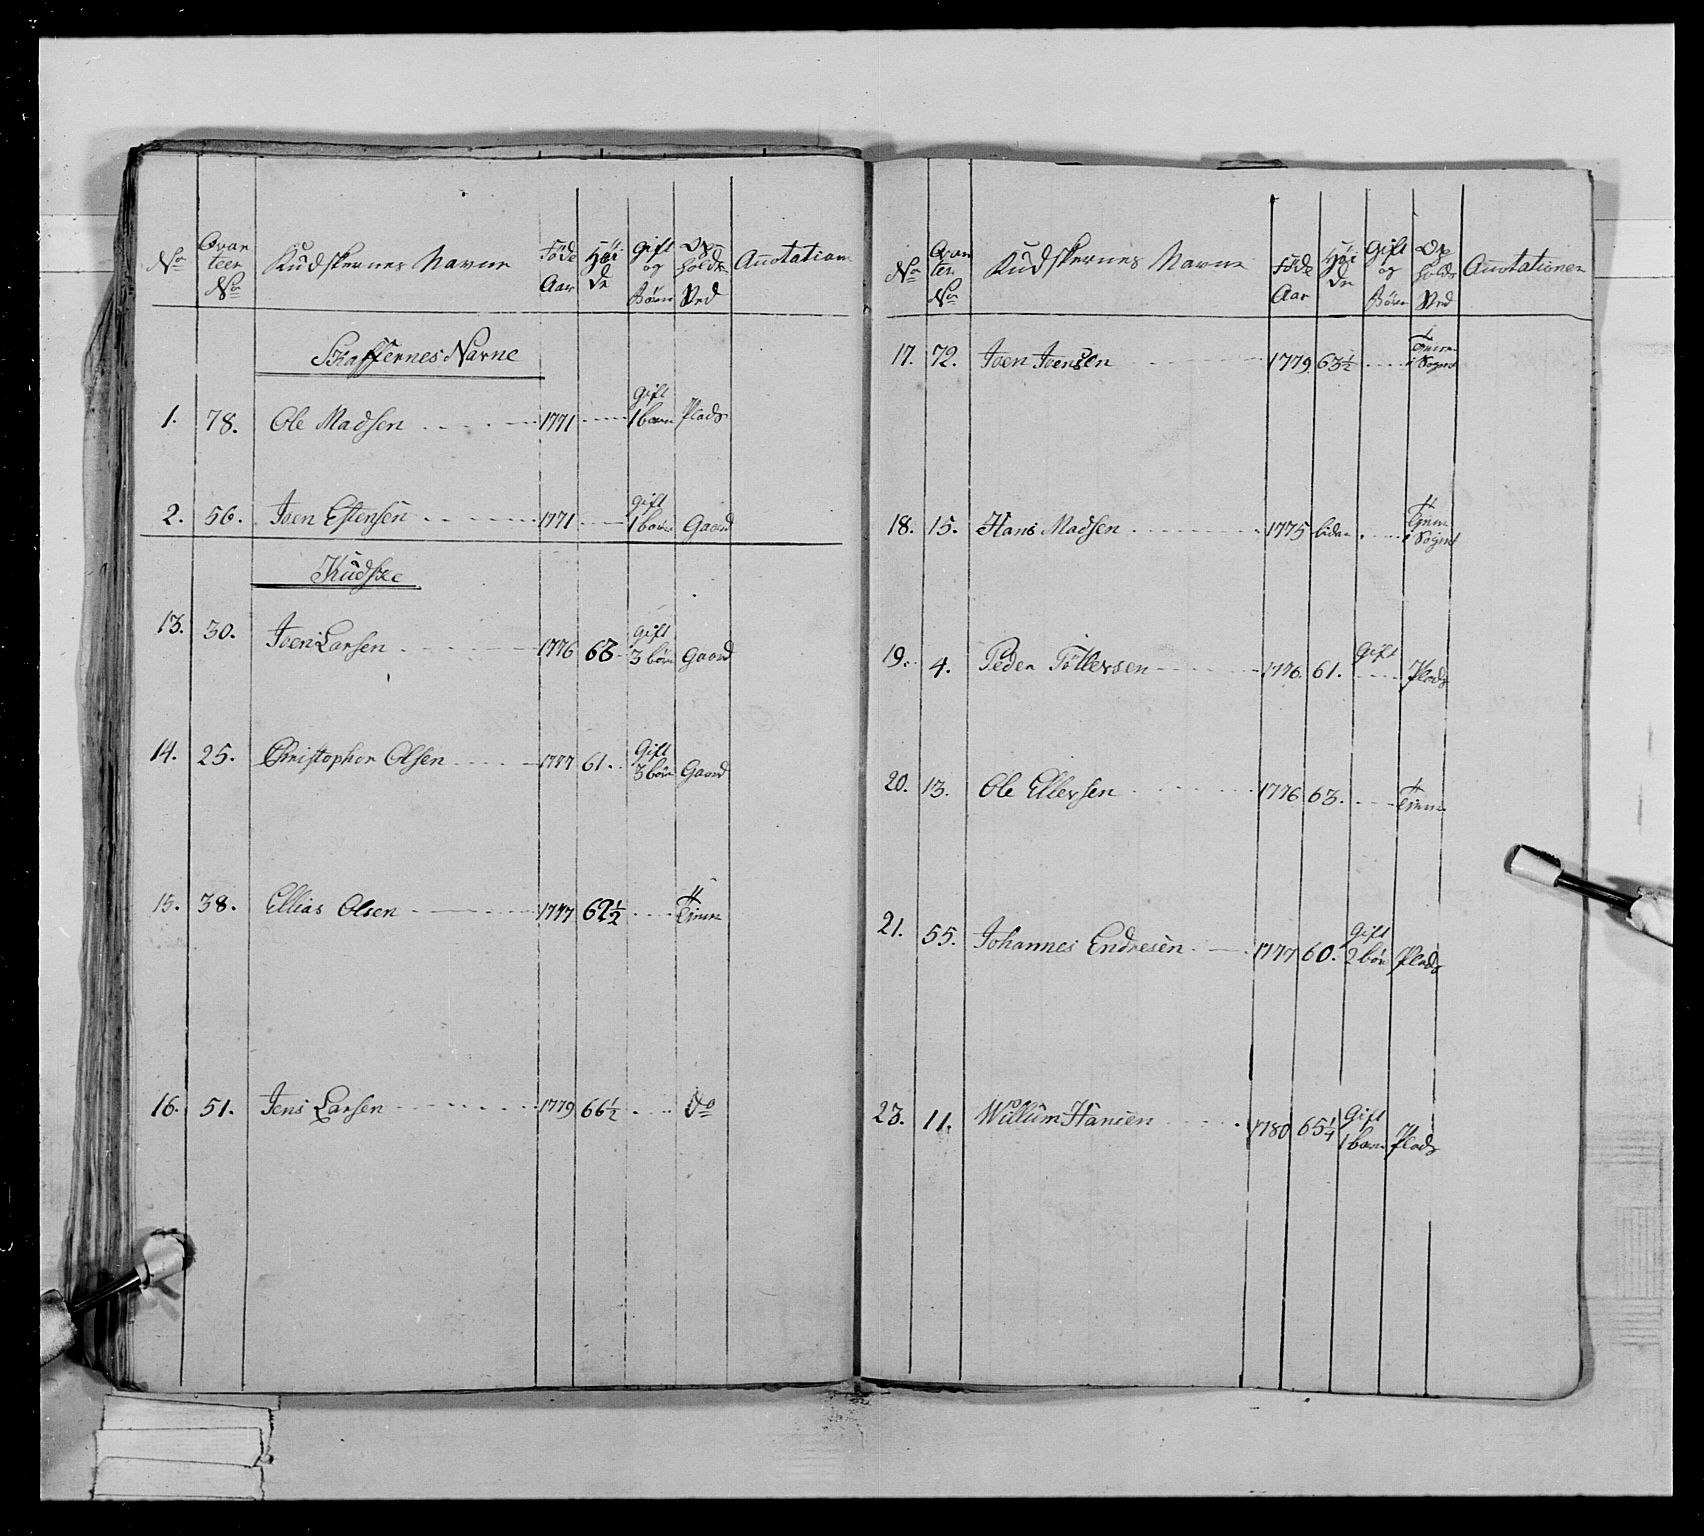 No Qvarteer No Kudskernes Navne Föde Aar Höide Gift og Börn Opholds Sted Anotation
Skaffernes Navne
1. 78. Ole Madsen 1771 Gift 1 barn Plads
2. 56. Joen Estensen 1771 Gift 1 barn Gaard
Kudske
13. 30. Joen Larsen 1776 63 Gift 3 börn Gaard
14. 25. Christopher Olsen 1777 61. Gift 3 börn Gaard
15. 38. Ellias Olsen 1777 62½ Tjener
16. 51. Jens Larsen 1779 66½ do
No Qvarteer No Kudskernes Navne Föde Aar Höide Gift og Börn Opholds Sted Anotationer
17. 72. Joen Joensen 1779 63½ i Sognet
18. 15. Hans Madsen 1775 i Sognet
19. 4. Peder Töllevsen 1776. 61. Gift Plads
20. 13. Ole Ellevsen 1776 63. Tjener
21. 55. Johannes Endresen 1777 60. Gift 2 börn Plads
23. 11. Willum Hansen 1780 65¼ Gift 1 barn Plads